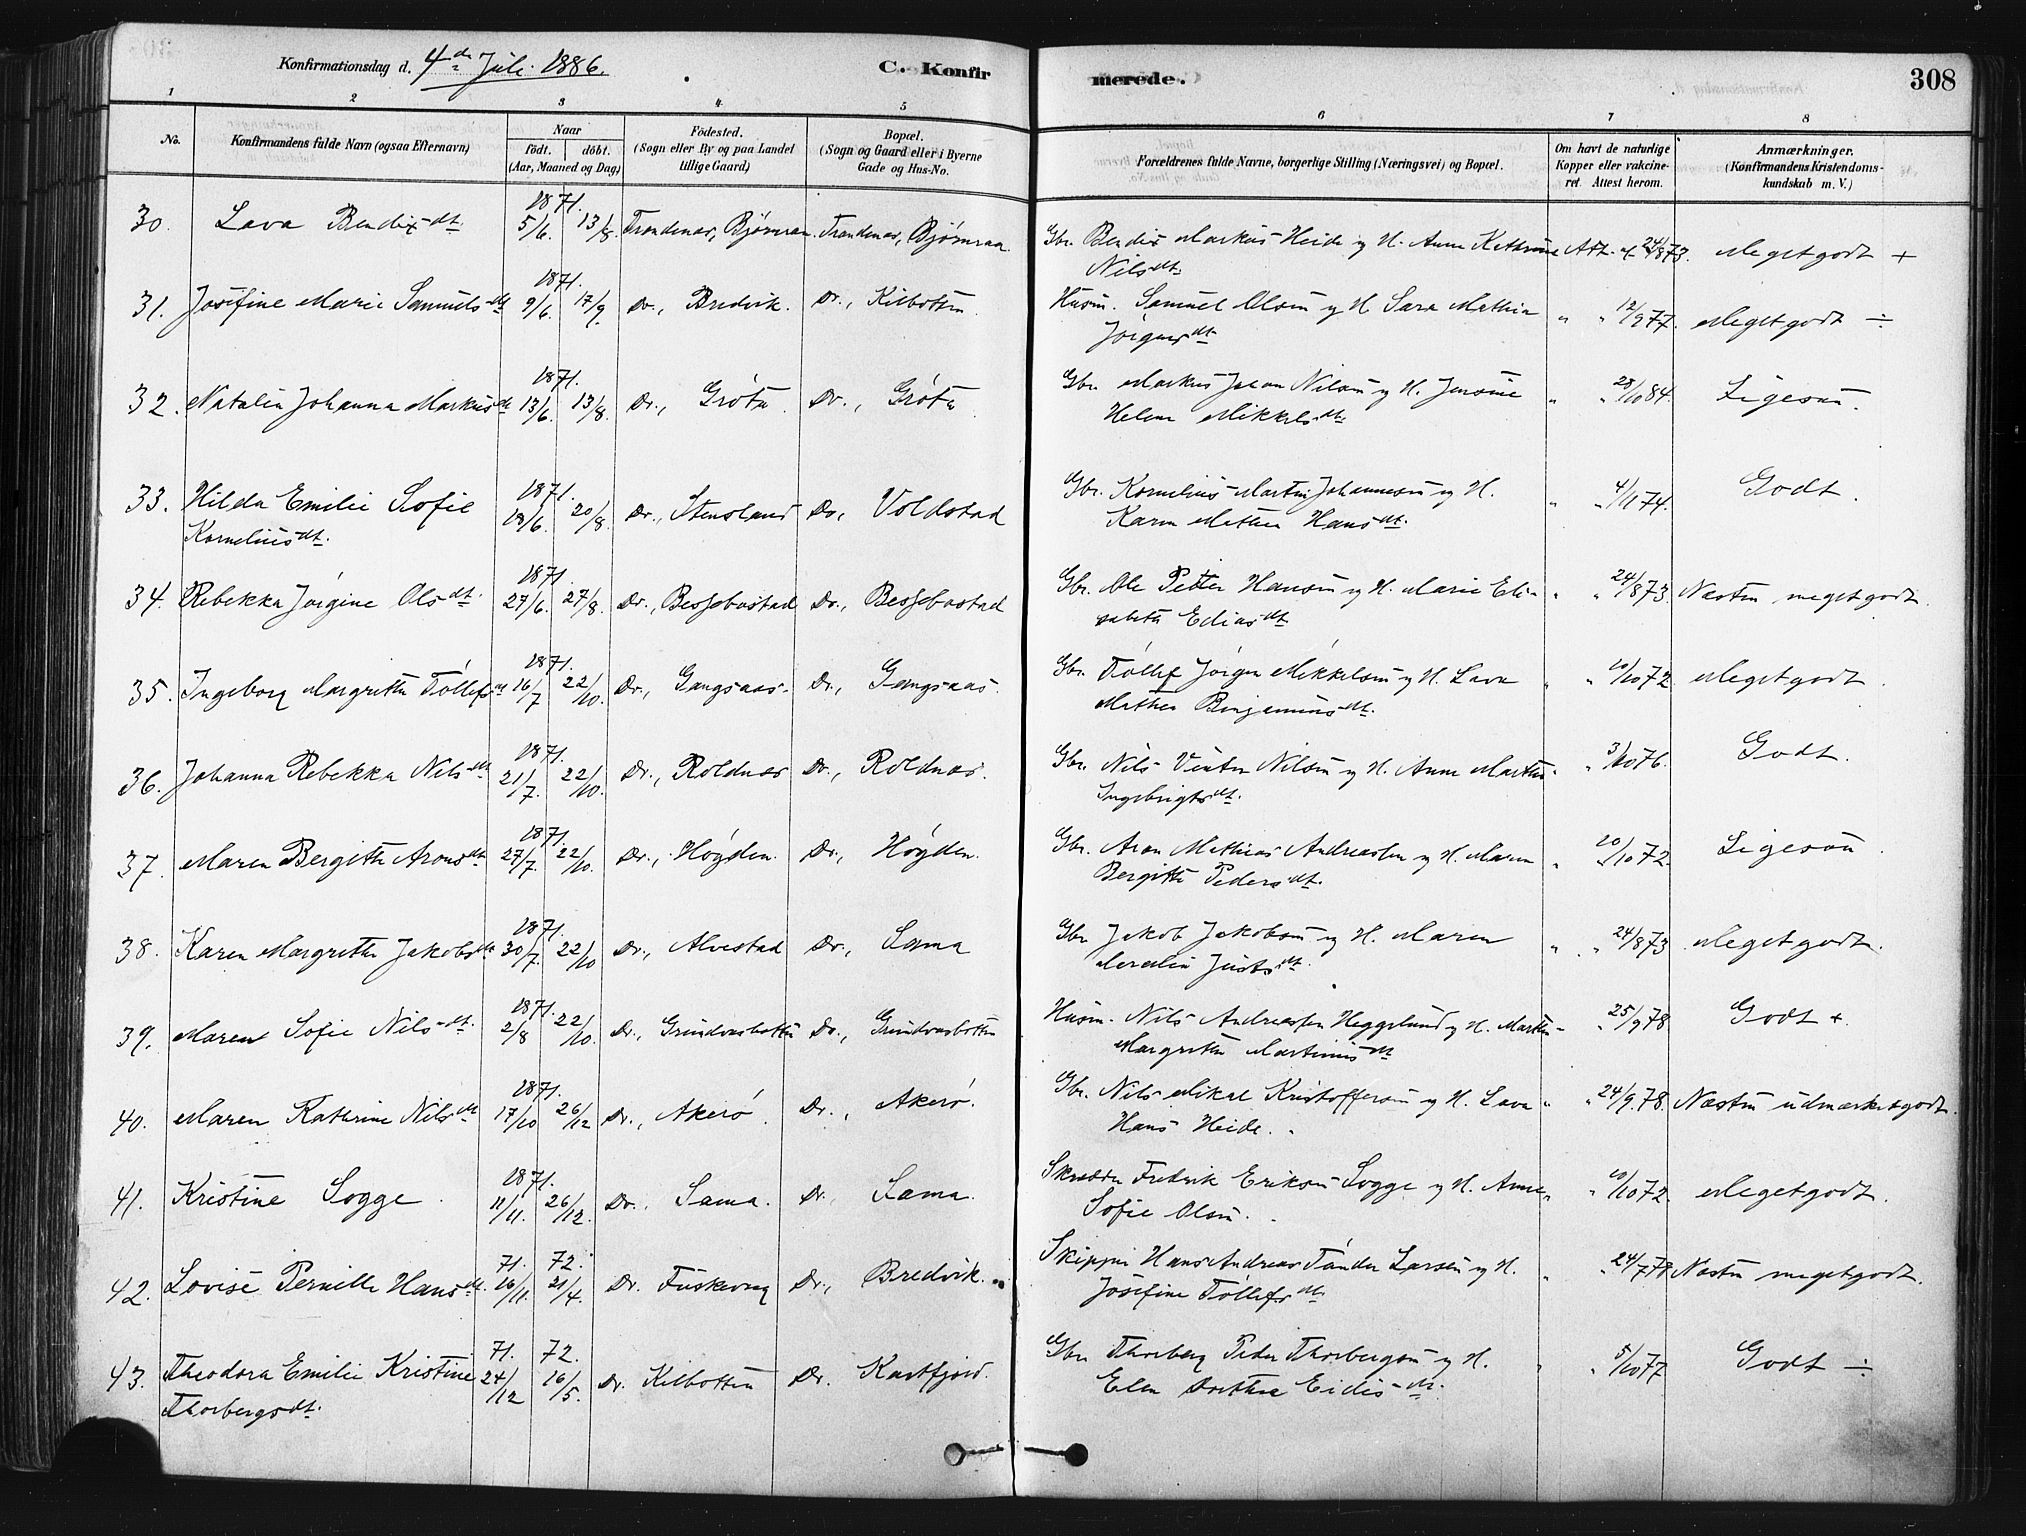 Konfirmationsdag d. 4de Juli 1886. C. Konfirmerede. 308
1 2 3 4 5 6 7 8
No. Konfirmandens fulde Navn (ogsaa Efternavn) Naar født. døbt. (Aar, Maaned og Dag) Fødested. (Sogn eller By og paa Landet tillige Gaard) Bopæl. (Sogn og Gaard eller i Byerne Gade og Hus-No. Forældrenes fulde Navne, borgerlige Stilling (Næringsvei) og Bopæl. Om havt de naturlige Kopper eller vakcineret. Attest herom. Anmærkninger. (Konfirmandens Kristendomskundskab m. V.)
30. Lava Bendixdt. 1871. 5/6. 13/8. Trondenas, Bjørnraa. Trondenas, Bjørnraa. Gbr. Bendix Markus Heide og H. Anne Kathrine Att. af 24/8 73. Meget godt +
Nilsdt.
31. Josefine Marie Samuelsdt 1871. 9/6. 17/9. Do., Bredvik. Do., Kilbotten. Husm. Samuel Olsen og H. Sara Mathea " " 12/9 77. Meget godt ÷
Jørgensdt
32. Natalia Johanna Markusdt 1871. 13/6. 13/8. Do., Grøta. Do., Grøta Gbr. Markus Johan Nilsen og H. Jensine " " 28/10 84. Ligesaa.
Helene Mikkelsdt
33. Hilda Emilie Sofie 1871. 19/6. 20/8. Do., Stensland Do., Voldstad Gbr. Kornelius Martin Johannesen og H. " " 4/11 74. Godt.
Korneliusdt. Karen Mathea Hansdt.
34. Rebekka Jørgine Olsdt. 1871. 27/6. 27/8. Do., Bessebostad Do., Bessebostad Gbr. Ole Petter Hansen og H. Marie Eli- " " 24/8 73. Næsten meget godt.
sabeta Eliasdt
35. Ingeborg Margrethe Tollefsdt 1871. 16/7 22/10. Do., Gangsaas. Do., Gangsaas. Gbr. Tollef Jørgen Mikkelsen og H. Lava " " 10/10 72. Meget godt.
Mathea Benjaminsdt.
36. Johanna Rebekka Nilsdt 1871. 21/7. 22/10. Do., Roldnas Do., Roldnas. Gbr. Nils Venter Nilsen og H. Anne Martha " 3/10 76. Godt.
Ingebrigtsdt.
37. Maren Bergitte Aronsdt 1871. 27/7. 22/10. Do., Høgden. Do., Høgden. Gbr. Aron Mathias Andreassen og H. Maren " " 10/10 72. Ligesaa.
Bergitte Pedersdt.
38. Karen Margrethe Jakobsdt 1871. 30/7. 22/10 Do., Alvestad Do., Sama Gbr. Jakob Jakobsen og H. Maren " " 24/8 73 Meget godt.
Justsdt.
39. Maren Sofie Nilsdt. 1871. 2/8 22/10. Do., Grundvasbotten Do., Grundvasbotten Husm. Nils Andreassen Heggelund og H. Martha " 25/9 78. Godt +
Margrethe Martinusdt
40. Maren Kathrine Nilsdt 1871. 17/10 26/12 Do., Akerø. Do., Akerø. Gbr. Nils Mikal Kristoffersen og H. Lava " " 24/9. 78. Næsten udmærket godt.
Hans Heide.
41. Kristine Sogge. 1871. 11/11. 26/12. Do., Sama. Do., Sama. Skrædder Fredrik Eriksen Sogge og H. Anne " " 10/10 72. Meget godt.
Sofie Olsen.
42. Lovise Pernille Hansdt. 71. 16/11. 72. 21/4. Do. Fuskevaag Do., Bredvik. Skipper Hans Andreas Tønder Larsen og H. " " 24/7 78. Næsten meget godt.
Josefine Tollefsdt.
43. Theodora Emilie Kristine 71. 24/12 72. 16/5. Do. Kilbotten Do. Kastfjord. Gbr. Thorberg Peder Thorbergsen og H. " " 5/10 77 Godt ÷
Thorbergsdt. Elen Dorthea Eidisdt.